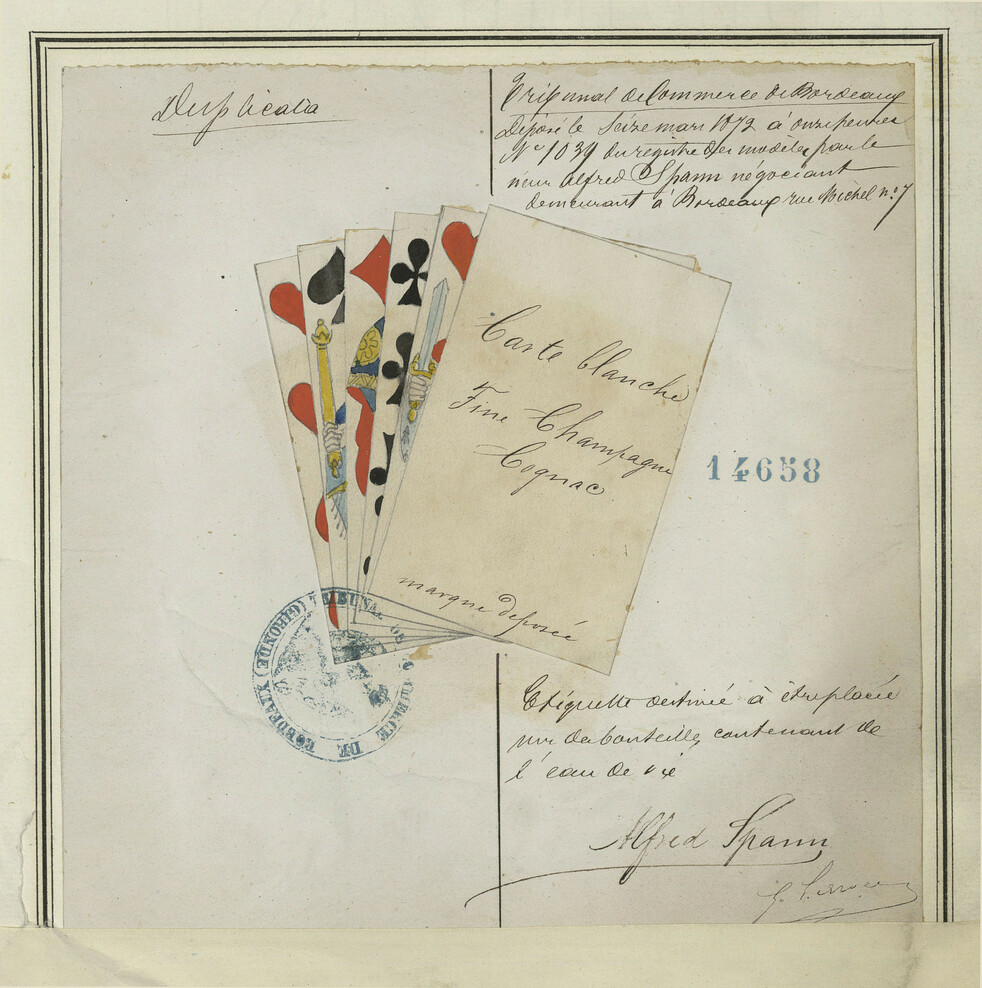 Duplicata
Tribunal de Commerce de Bordeaux
Déposé le seize mars 1872 à onze heures
No 1039 du registre des modèles par le
sieur Alfred Spann négociant
demeurant à Bordeaux rue Michel no. 7
Carte blanche
Fine Champagne
Cognac
marque déposée
14658
TRIBUNAL DE COMMERCE DE BORDEAUX (GIRONDE)
Etiquette destinée à être placée
sur des bouteilles contenant de
l'eau de vie
Alfred Spann